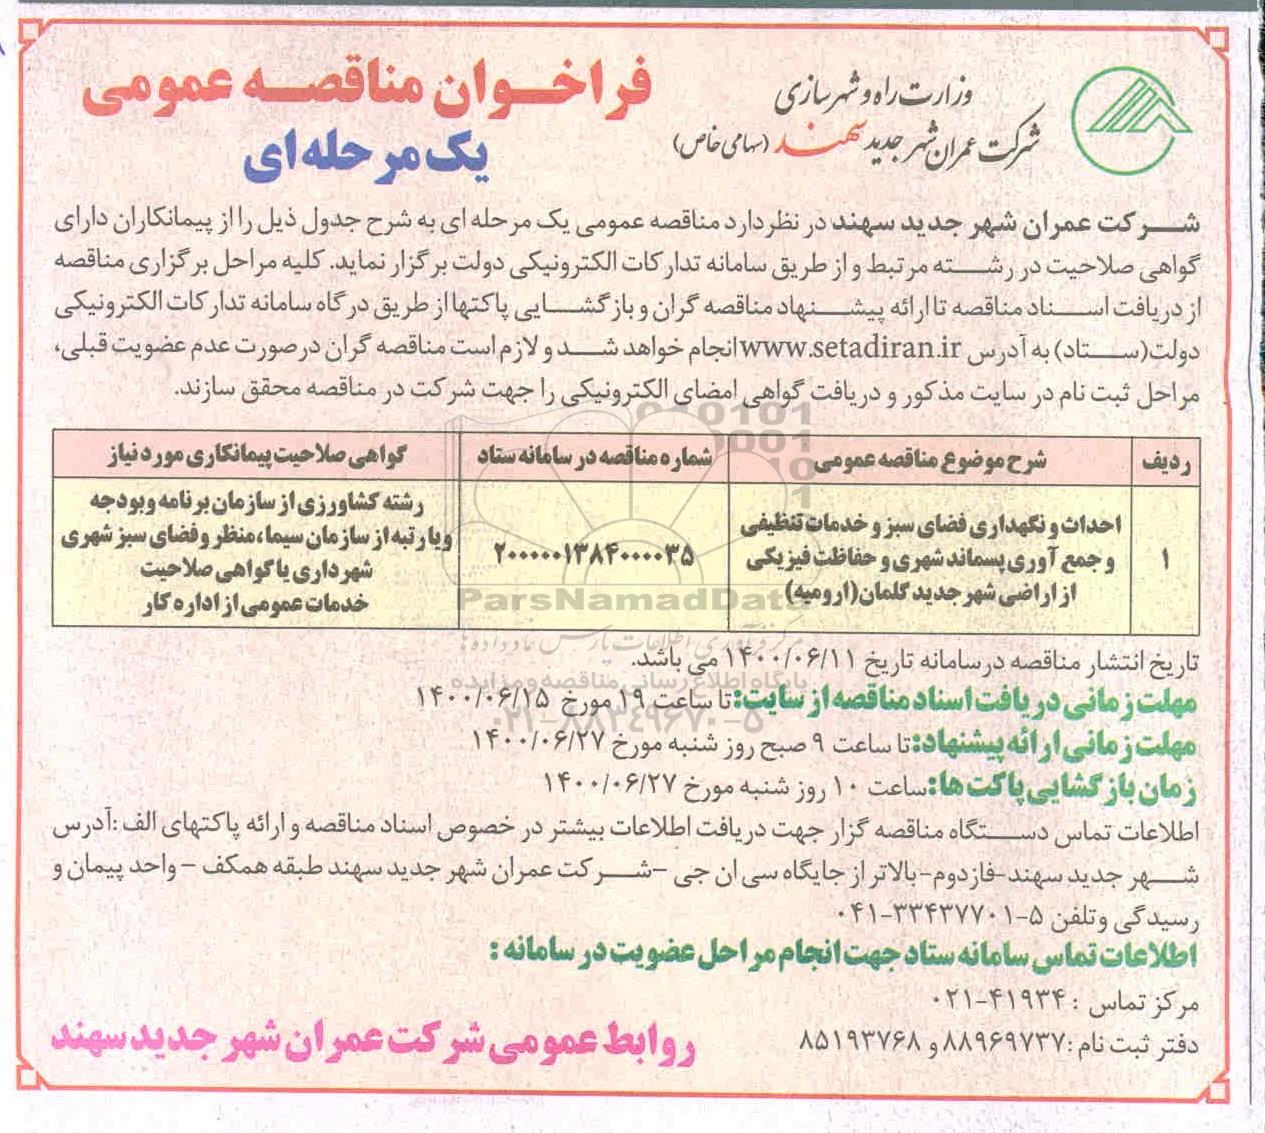 وزارت راه و شهرسازی
شرکت عمران شهر جدید سهند (سهامی خاص)
فراخوان مناقصه عمومی
یک مرحله ای
شرکت عمران شهر جدید سهند در نظر دارد مناقصه عمومی یک مرحله ای به شرح جدول ذیل را از پیمانکاران دارای
گواهی صلاحیت در رشته مرتبط و از طریق سامانه تدارکات الکترونیکی دولت برگزار نماید. کلیه مراحل برگزاری مناقصه
از دریافت اسناد مناقصه تا ارائه پیشنهاد مناقصه گران و بازگشایی پاکتها از طریق درگاه سامانه تدارکات الکترونیکی
دولت(ستاد) به آدرس www.setadiran.ir انجام خواهد شد و لازم است مناقصه گران در صورت عدم عضویت قبلی،
مراحل ثبت نام در سایت مذکور و دریافت گواهی امضای الکترونیکی را جهت شرکت در مناقصه محقق سازند.
ردیف شرح موضوع مناقصه عمومی شماره مناقصه در سامانه ستاد گواهی صلاحیت پیمانکاری مورد نیاز
۱
احداث و نگهداری فضای سبز و خدمات تنظیفی
و جمع آوری پسماند شهری و حفاظت فیزیکی
از اراضی شهر جدید گلمان(ارومیه)
۲۰۰۰۰۰۱۳۸۴۰۰۰۰۳۵
رشته کشاورزی از سازمان برنامه و بودجه
و یا رتبه از سازمان سیما، منظر و فضای سبز شهری
شهرداری یا گواهی صلاحیت
خدمات عمومی از اداره کار
ParsNamadData
مرکز فرآوری اطلاعات پارس نماد داده ها
پایگاه اطلاع رسانی مناقصه و مزایده
۰۲۱-۸۸۳۴۹۶۷۰-۵
تاریخ انتشار مناقصه در سامانه تاریخ ۱۴۰۰/۰۶/۱۱ می باشد.
مهلت زمانی دریافت اسناد مناقصه از سایت: تا ساعت ۱۹ مورخ ۱۴۰۰/۰۶/۱۵
مهلت زمانی ارائه پیشنهاد: تا ساعت ۹ صبح روز شنبه مورخ ۱۴۰۰/۰۶/۲۷
زمان بازگشایی پاکت ها: ساعت ۱۰ روز شنبه مورخ ۱۴۰۰/۰۶/۲۷
اطلاعات تماس دستگاه مناقصه گزار جهت دریافت اطلاعات بیشتر در خصوص اسناد مناقصه و ارائه پاکتهای الف :آدرس
شهر جدید سهند-فاز دوم-بالاتر از جایگاه سی ان جی -شرکت عمران شهر جدید سهند طبقه همکف - واحد پیمان و
رسیدگی و تلفن ۵-۳۳۴۳۷۷۰۱-۰۴۱
اطلاعات تماس سامانه ستاد جهت انجام مراحل عضویت در سامانه :
مرکز تماس : ۴۱۹۳۴-۰۲۱
دفتر ثبت نام :۸۸۹۶۹۷۳۷ و ۸۵۱۹۳۷۶۸
روابط عمومی شرکت عمران شهر جدید سهند